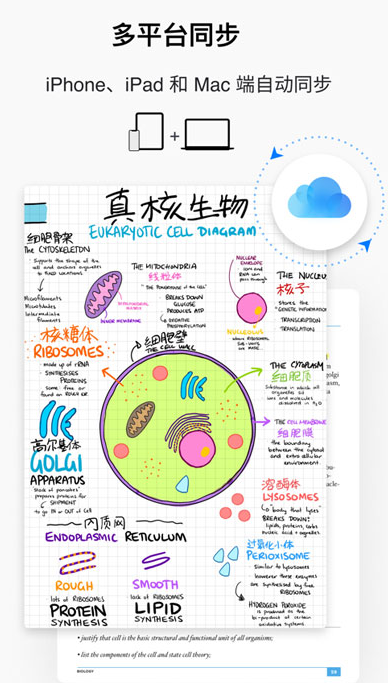 多平台同步
iPhone、iPad 和 Mac 端自动同步
+
真核生物
EUKARYOTIC CELL DIAGRAM
细胞骨架
THE CYTOSKELETON
Supports the shape of the
cell and anchors organelles
to fixed locations
Microfilaments
Microtubules
Intermediate
filaments
THE MITOCHONDRIA
线粒体
"THE POWERHOUSE of the CELL"
BREAKS DOWN
GLUCOSE
PRODUCES ATP
INNER MEMBRANE
NUCLEAR
ENVELOPE
pass through
THE NUCLEUS
核子
STORES the
"GENETIC INFORMATION"
TRANSCRIPTION
TRANSLATION
NUCLEOLUS
WHERE RIBOSOMAL
核糖体
RIBOSOMES:
made up of rRNA
SYNTHESISES
PROTEINS
some free or
found on
细胞壁
THE CELL WALL
THE CYTOPLASM
细胞质
Substance in which all
organelles
ions and molecules
dissolved in H₂O
THE CELL MEMBRANE
细胞膜
the boundary
between the cytosol
and extra cellular
environment
高尔基体
GOLGI
APPARATUS
Stack of
prepares proteins for
SHIPMENT
to go IN or OUT of Cell
溶酶体
LYSOSOMES
"body that lyses"
BREAKS DOWN:
lipids, proteins, carbs
nucleic acid + organelles
内质网
ENDOPLASMIC RETICULUM
ROUGH
lots of RIBOSOMES
PROTEIN
SYNTHESIS
SMOOTH
lack of RIBOSOMES
LIPID
SYNTHESIS
过氧化小体
PEROXISOME
Similar to lysosomes
however these enzymes
are synthesised by free
RIBOSOMES
HYDROGEN PEROXIDE
is produced as the
bi-product of certain
oxidative systems
• justify that cell is the basic structural and functional unit of all organisms;
• list the components of the cell and state cell theory;
BIOLOGY